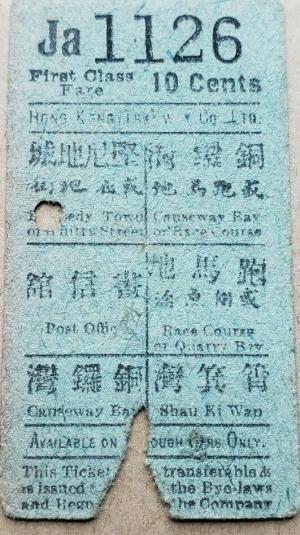 Ja 1126
First Class 10 Cents
Fare
HONG KONG Co., LTD.
城地尼堅 灣鑼銅
地馬跑或
Town Causeway Bay
or Whitty Street or Race Course
館信書 地馬跑
涌魚鰂或
Post Office Race Course
or Quarry Bay
灣鑼銅 灣箕筲
Causeway Bay Shau Ki Wan
AVAILABLE ON CARS ONLY.
This Ticket transferable &
is issued the Bye-laws
and the Company